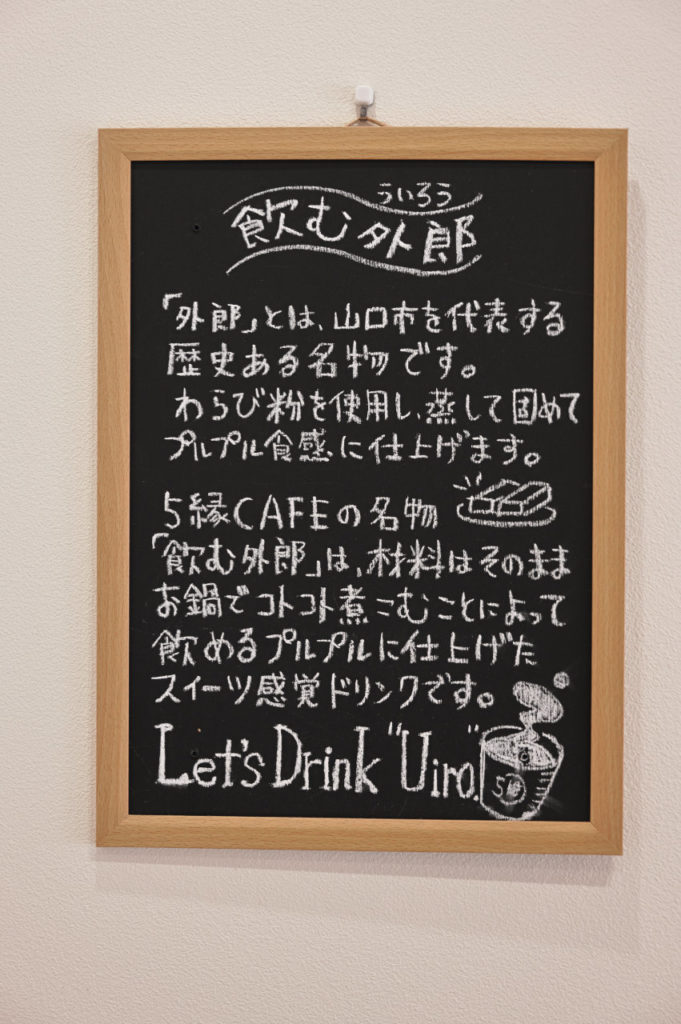 ういろう
飲む外郎
「外郎」とは、山口市を代表する
歴史ある名物です。
わらび粉を使用し、蒸して固めて
プルプル食感に仕上げます。
5縁CAFEの名物
「飲む外郎」は、材料はそのまま
お鍋でコトコト煮こむことによって
飲めるプルプルに仕上げた
スイーツ感覚ドリンクです。
Let's Drink "Uiro."
5縁